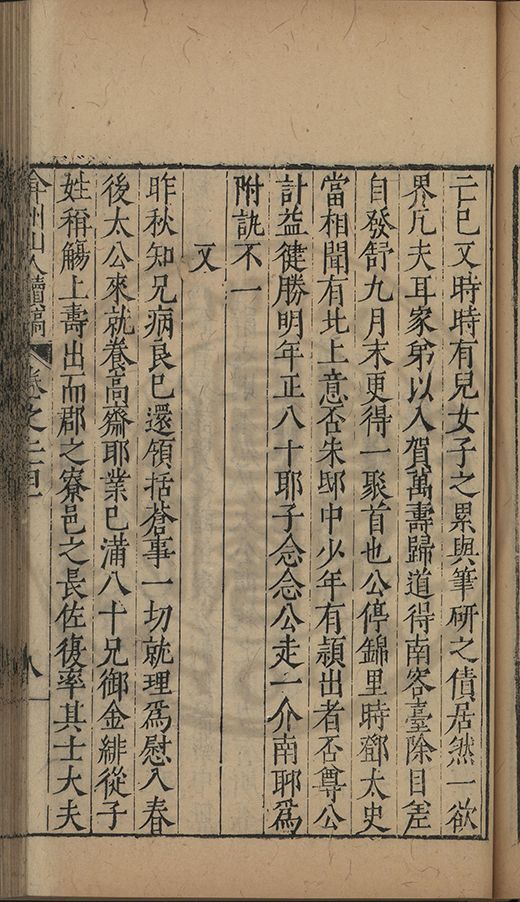 亡已又時時有兒女子之累與筆研之債居然一欲
界凢夫耳家弟以入賀萬壽歸道得南容臺除目差
自發舒九月末更得一聚首也公停錦里時鄧太史
當相聞有北上意否朱邸中少年有穎出者否尊公
計益健勝明年正八十耶子念念公走一介南耶爲
附訊不一
又
昨秋知兄病良已還領括蒼事一切就理爲慰入春
後太公來就養高齋耶業已滿八十兄御金緋從子
姓稱觴上壽出而郡之寮邑之長佐復率其士大夫
弇州山人續稿 卷之 八